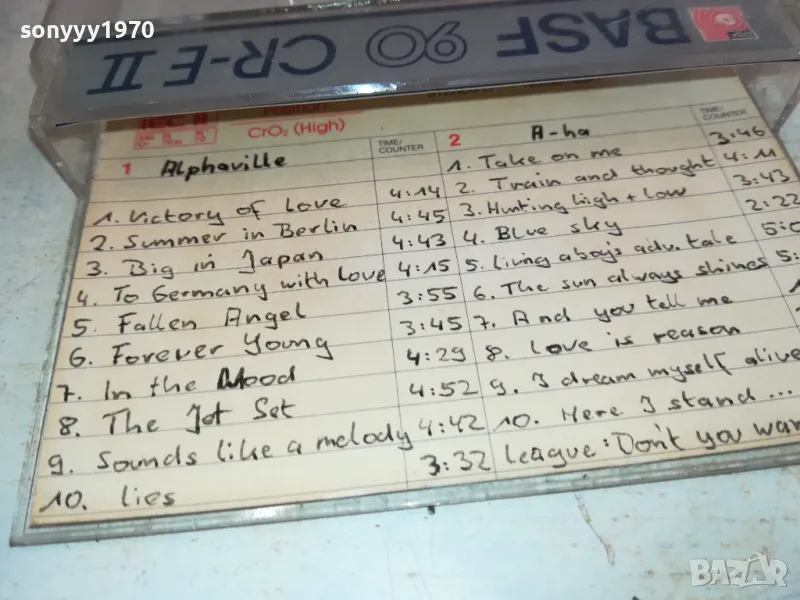 sonyyy1970
BASF 90 CR-E II
IEC II
Position
CrO₂ (High)
1 Alphaville
TIME/
COUNTER
1. Victory of Love 4:14
2. Summer in Berlin 4:45
3. Big in Japan 4:43
4. To Germany with Love 4:15
5. Fallen Angel 3:55
6. Forever Young 3:45
7. In the Mood 4:29
8. The Jet Set 4:52
9. Sounds like a melody 4:42
10. lies 3:32
2 A-ha
TIME/
COUNTER
1. Take on me 3:46
2. Train and thought 4:11
3. Hunting high + low 3:43
4. Blue sky 2:22
5. living aboy's adv. tale 5:0
6. The sun always shines 5:
7. And you tell me
8. Love is reason
9. I dream myself alive
10. Here I stand ...
league: Don't you wan
BAZAR